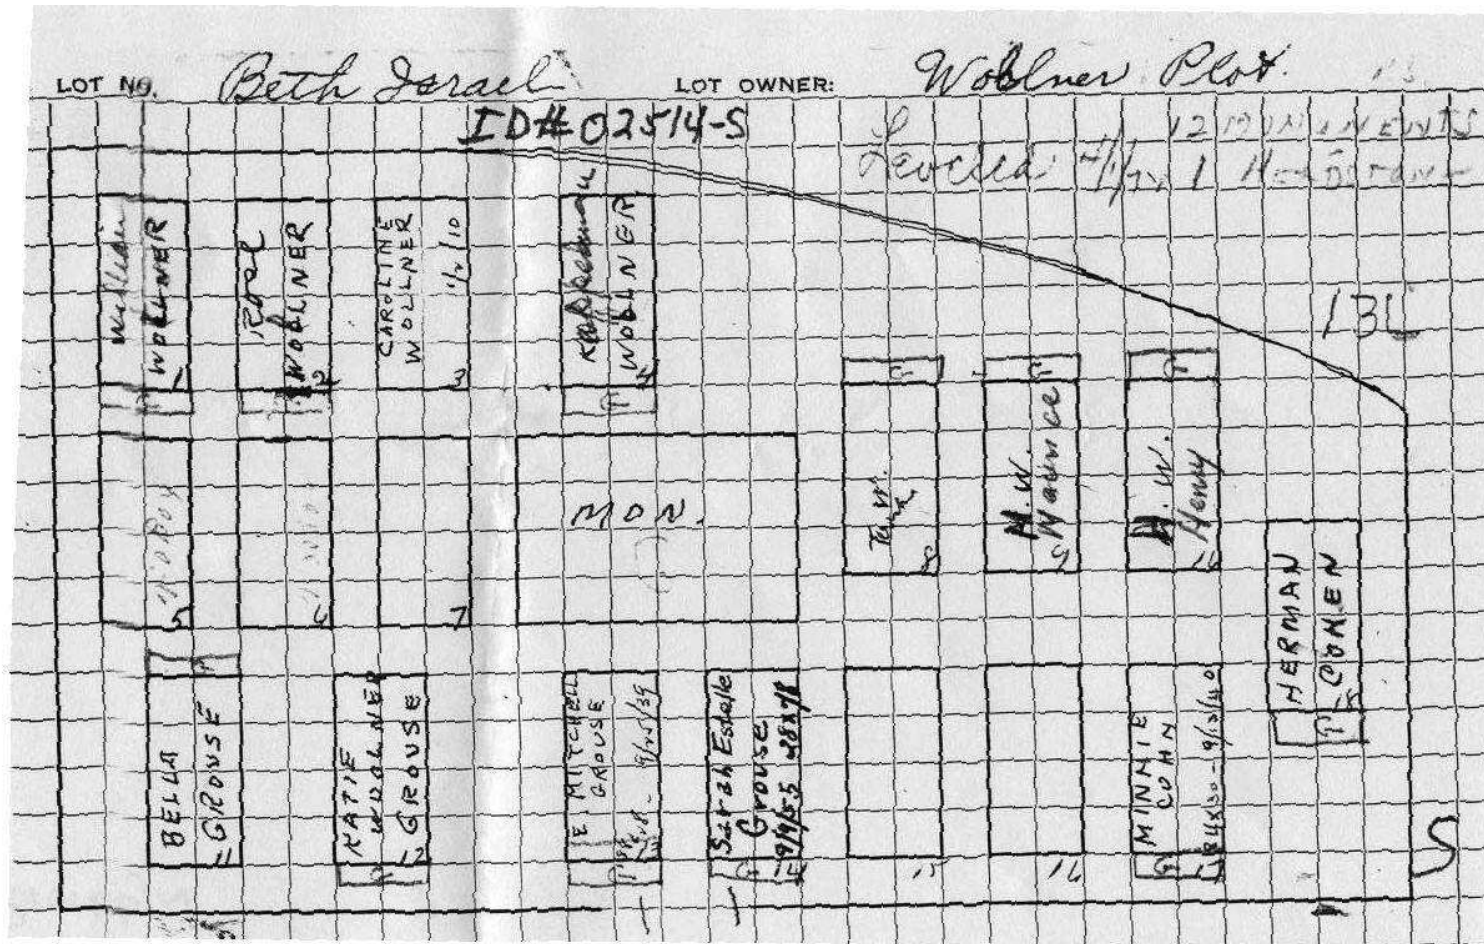 LOT NO. Beth Israel LOT OWNER: Wollner Plot.
ID# 02514-S
12 MONUMENTS
Leveled 4/1/74 1 HEADSTONE
William
WOLLNER
1
Rose
WOLLNER
2
CAROLINE
WOLLNER
3
1/2/10
WOLLNER
4
13L
5
6
7
MON.
T.W.
8
H.W.
Maurice
9
H.W.
Henry
10
HERMAN
COHEN
18
BELLA
GROUSE
11
KATIE
WOOLNER
GROUSE
12
E MITCHELL
GROUSE
9/25/39
13
Sarah Estelle
Grouse
9/9/55 28x78
14
15
16
MINNIE
COHN
84x30 - 9/13/40
17
S